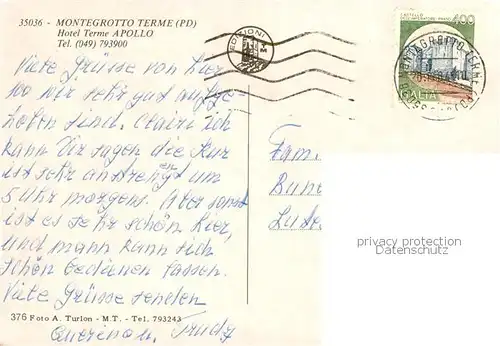 35036 - MONTEGROTTO TERME (PD)
Hotel Terme APOLLO
Tel. (049) 793900
EDIZIONI
400
ITALIA
MONTEGROTTO TERME
Viele Grüsse von hier
wo wir sehr gut aufge
hoben sind. Clairi ich
kann Dir sagen die Kur
ist sehr anstrengend um
5 Uhr morgens. Aber sonst
ist es sehr schön hier,
und mann kann sich
schön bedienen lassen.
Viele Grüsse senden
Trudy
Fam.
privacy protection
Datenschutz
376 Foto A. Turlon - M.T. - Tel. 793243